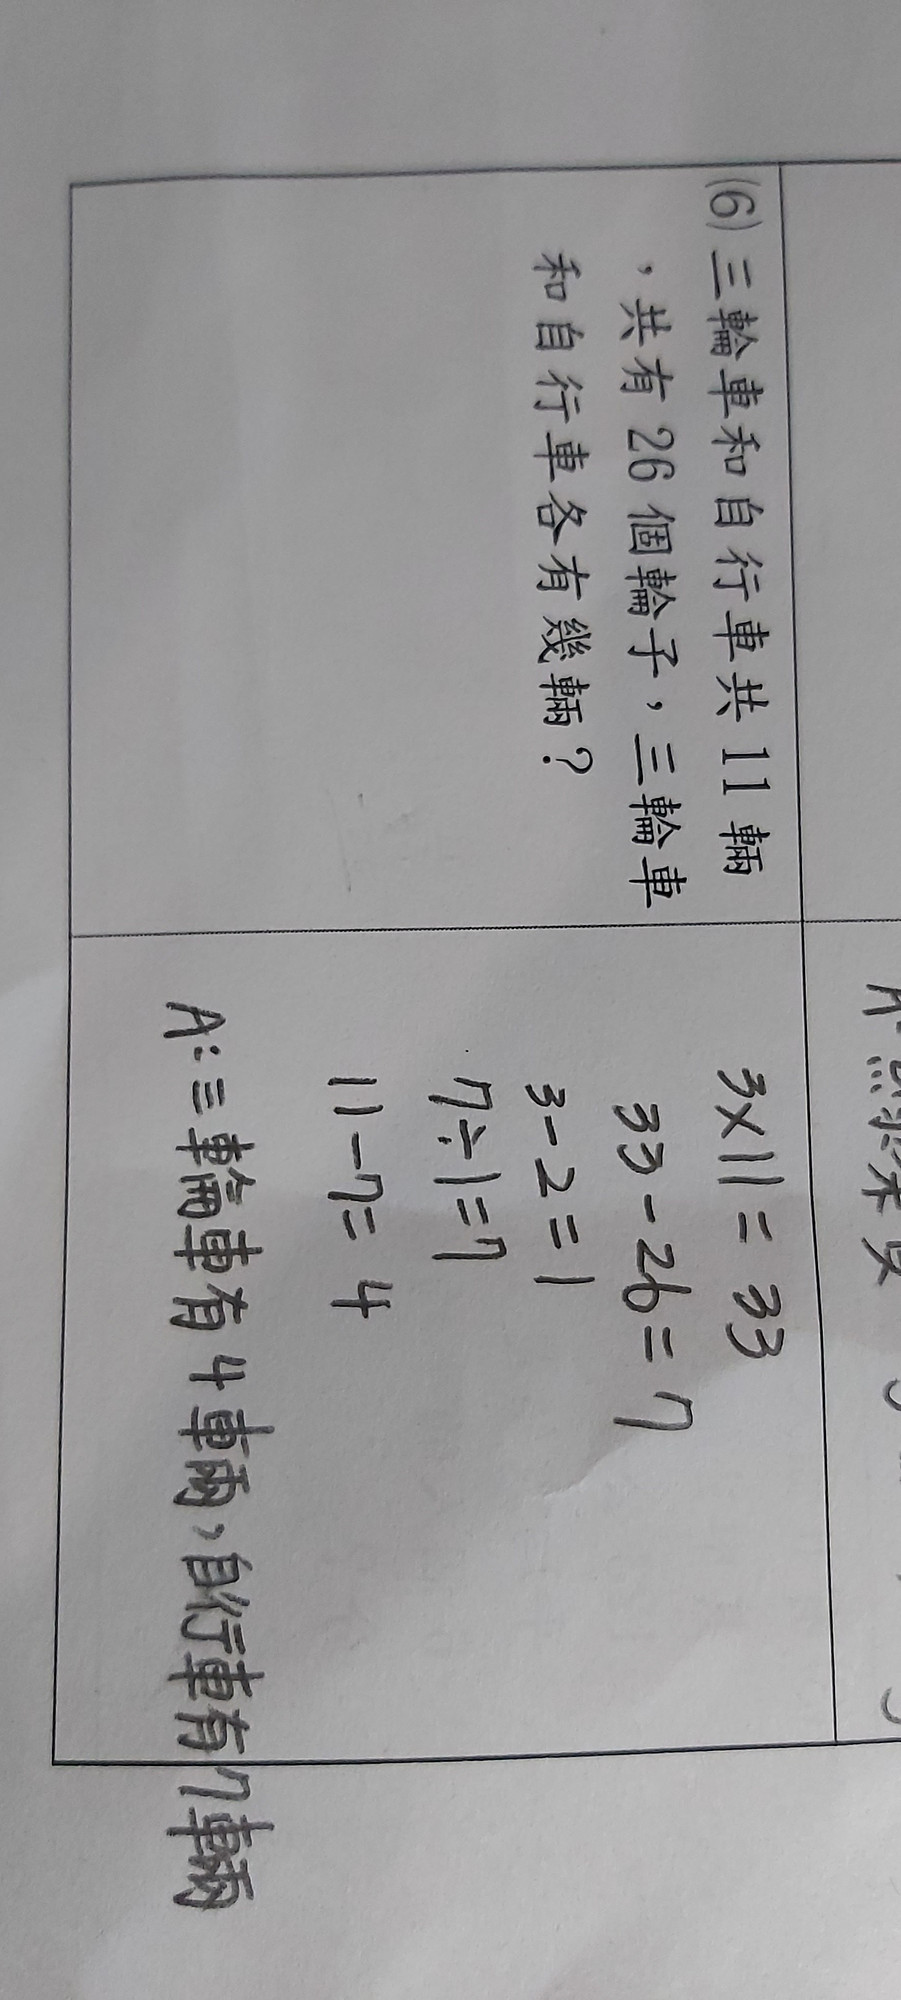 (6) 三輪車和自行車共 11 輛
，共有 26 個輪子，三輪車
和自行車各有幾輛？
3×11=33
33-26=7
3-2=1
7÷1=7
11-7=4
A:三輪車有4輛，自行車有7輛